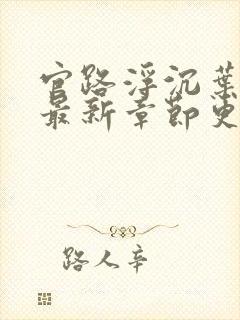 官路浮沉葉
最新章節史
路人辛